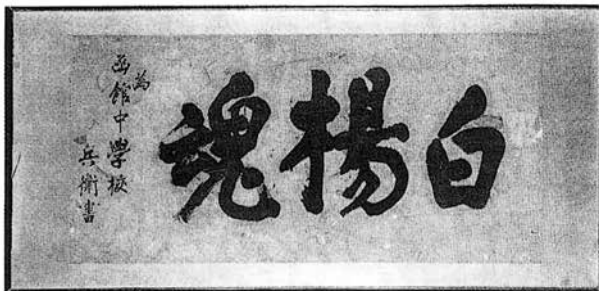 白楊魂
為
函館中學校
兵衛書